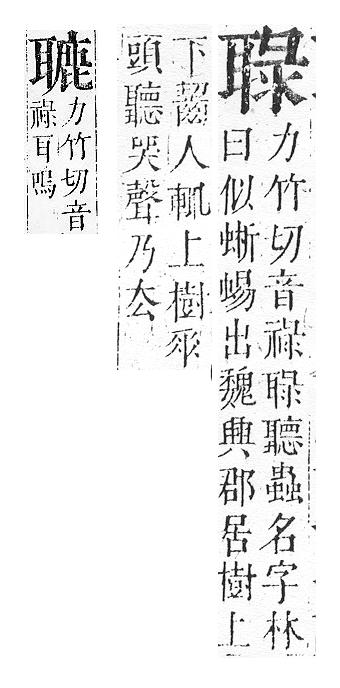 䎼
力竹切音祿䎼聽蟲名字林
曰似蜥蜴出魏興郡居樹上
下齧人輒上樹垂
頭聽哭聲乃厺
力竹切音
祿耳鳴